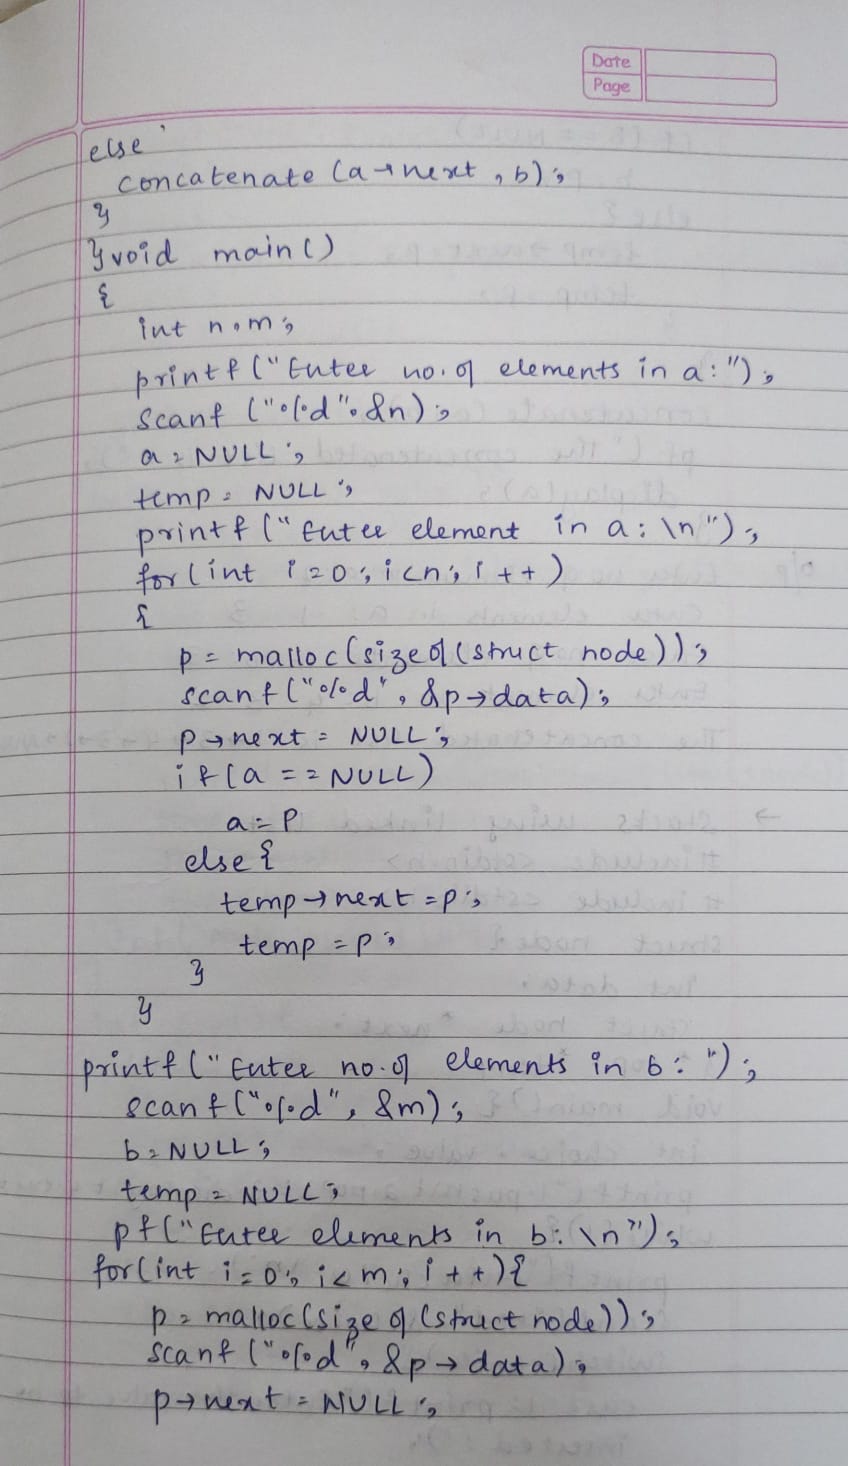 Date
Page
else
concatenate (a→next, b);
}
} void main()
{
int n, m;
printf ("Enter no. of elements in a:");
scanf ("%d", &n);
a = NULL;
temp = NULL;
printf ("Enter element in a: \n");
for (int i=0; i<n; i++)
{
p = malloc (sizeof (struct node));
scanf ("%d", &p→data);
p→next = NULL;
if (a == NULL)
a = p
else {
temp→next = p;
temp = p;
}
}
printf ("Enter no. of elements in b: ");
scanf ("%d", &m);
b = NULL;
temp = NULL;
pf ("Enter elements in b: \n");
for (int i=0; i<m; i++) {
p = malloc (size of (struct node));
scanf ("%d", &p→data);
p→next = NULL;